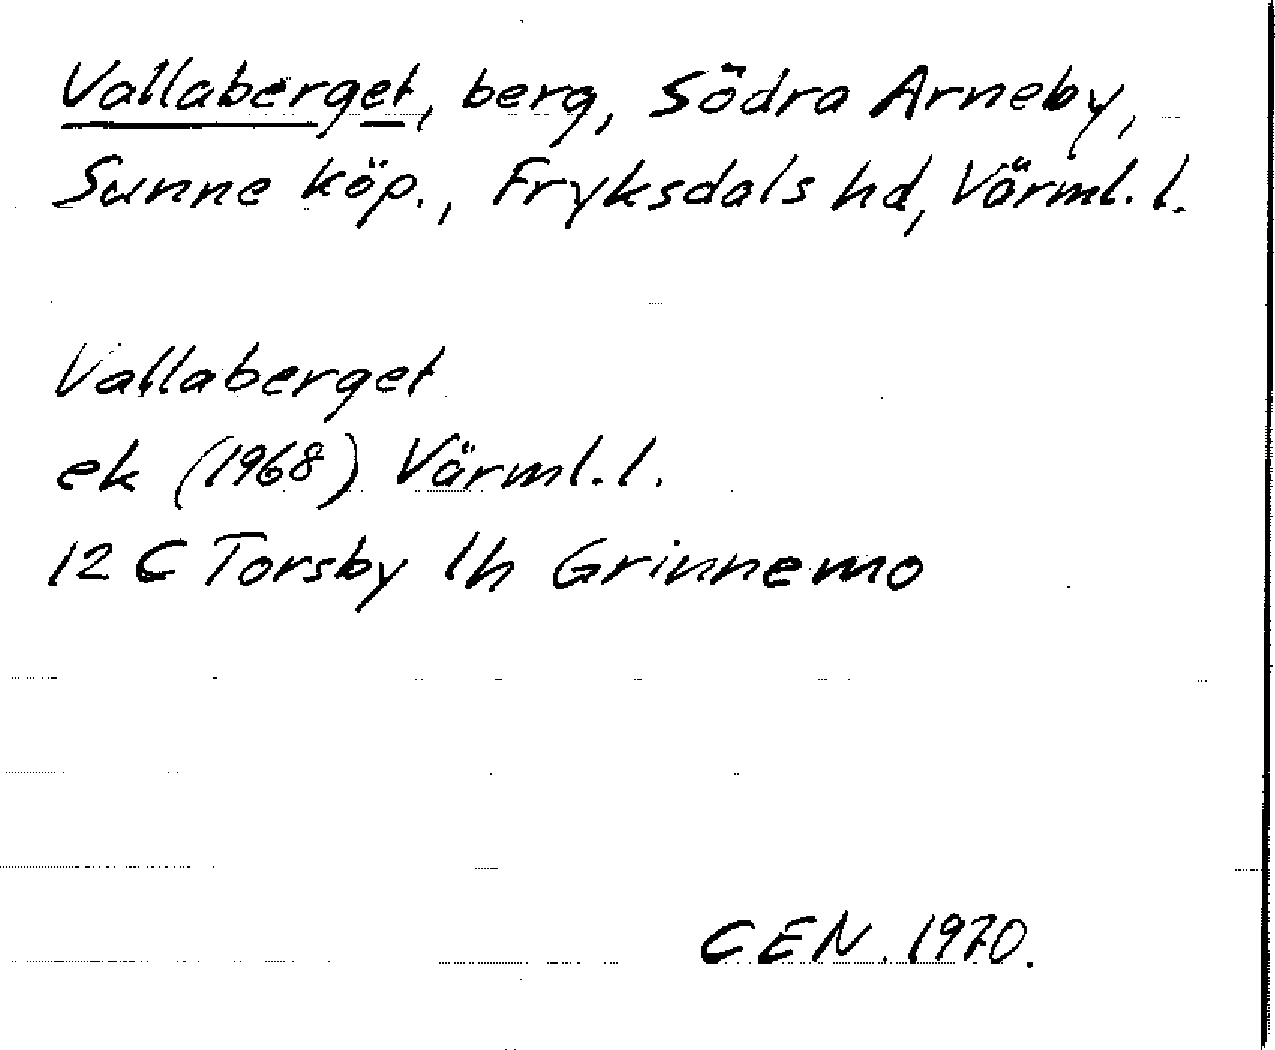 Vallaberget, berg, Södra Arneby,
Sunne köp., Fryksdals hd, Värml. l.
Vallaberget
ek (1968) Värml. l.
12 C Torsby 1h Grinnemo
CEN. 1970.